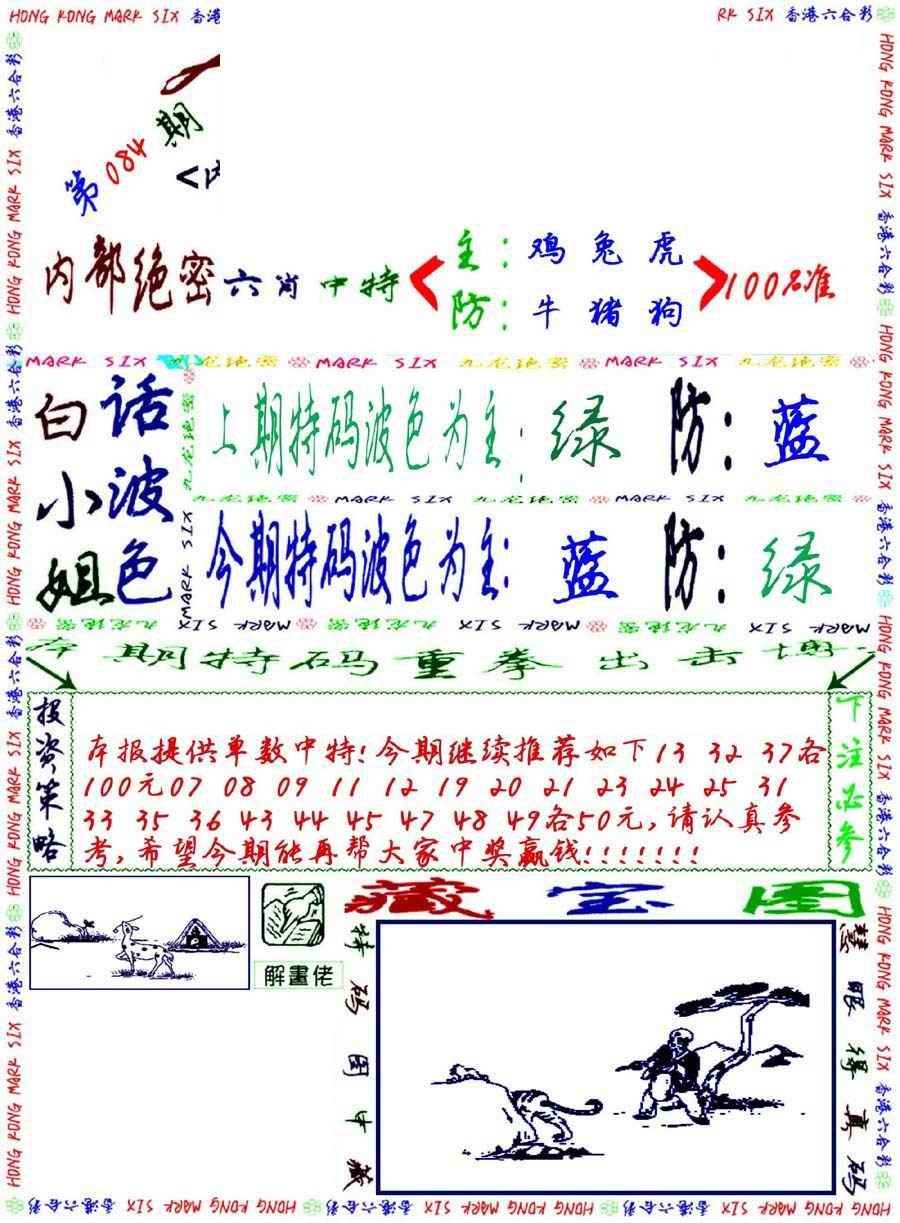 HONG KONG MARK SIX 香港
RK SIX 香港六合彩
第084期
<内
内部绝密六肖中特
主：鸡兔虎
防：牛猪狗
100%准
MARK SIX 九龙绝密 MARK SIX 九龙绝密 MARK SIX 九龙绝密
白话小波姐色
上期特码波色为主：绿 防：蓝
九龙绝密 MARK SIX 九龙绝密 MARK SIX
今期特码波色为主：蓝 防：绿
MARK SIX 九龙绝密 MARK SIX 九龙绝密 MARK SIX 九龙绝密
本期特码重拳出击
投资策略
本报提供单数中特!今期继续推荐如下13 32 37各
100元07 08 09 11 12 19 20 21 23 24 25 31
33 35 36 43 44 45 47 48 49各50元,请认真参
考,希望今期能再帮大家中奖赢钱!!!!!!!
下注必参
藏宝图
解畫佬
特码图中藏
慧眼得真码
HONG KONG MARK SIX 香港六合彩